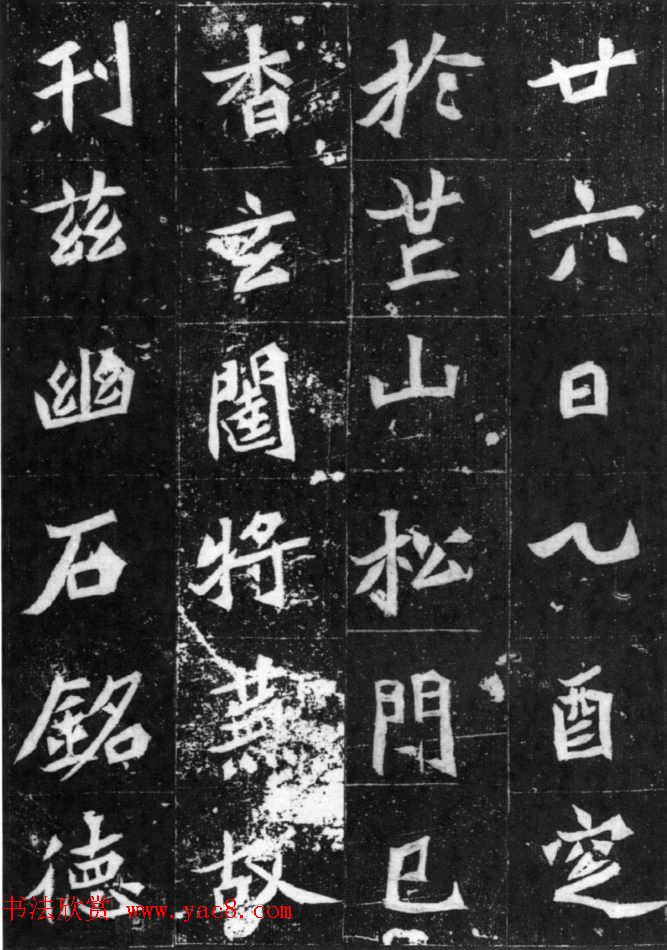 廿六日乙酉窆
於芒山松門已
杳玄將蕪故
刊茲幽石銘德
书法欣赏 www.yac8.com